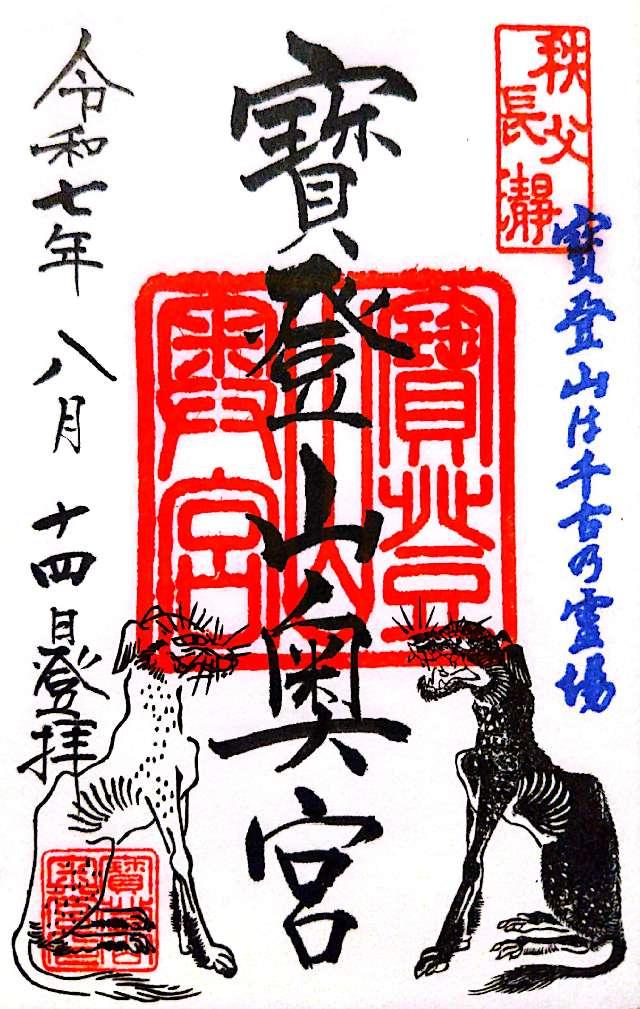 秩父
長瀞
寶登山は千古乃霊場
寶登山奥宮
寶登
山
奥宮
令和七年八月十四日登拝